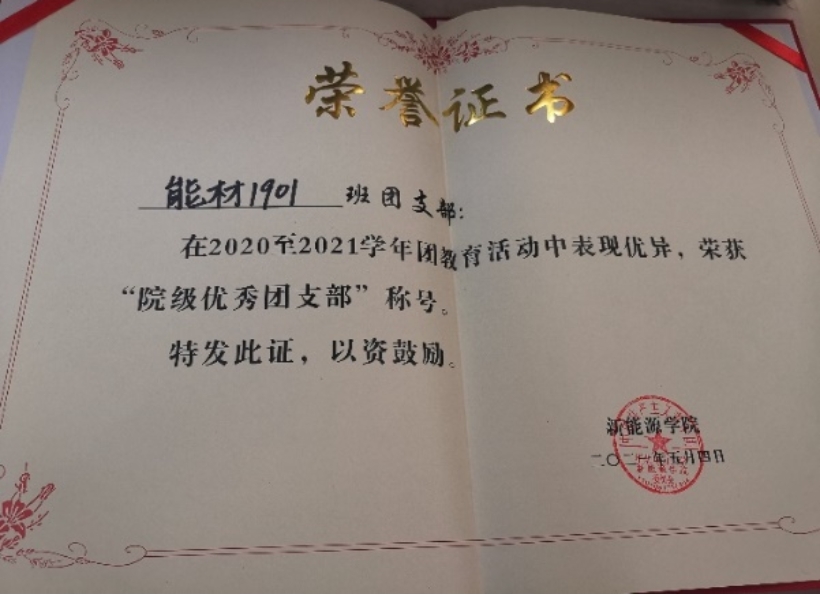 荣誉证书
能材1901 班团支部：
在2020至2021学年团教育活动中表现优异，荣获
“院级优秀团支部”称号。
特发此证，以资鼓励。
新能源学院
二〇二一年五月四日